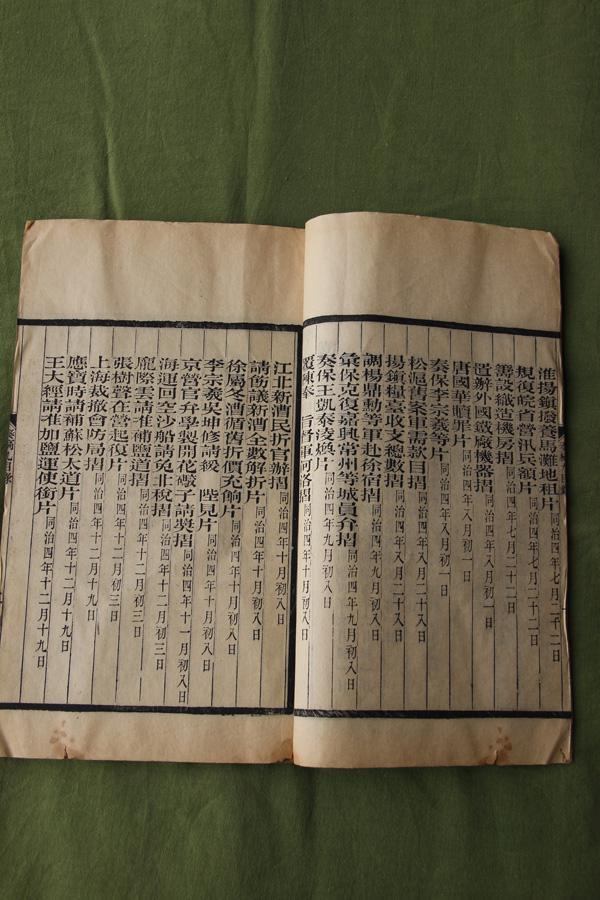 淮揚鎮撥養馬灘地租片同治四年七月二十二日
規復皖省營汛兵額片同治四年七月二十二日
籌設織造機房摺同治四年七月二十二日
置辦外國鐵廠機器摺同治四年八月初一日
唐國華贖罪片同治四年八月初一日
奏保李宗羲等片同治四年八月初一日
松滬舊案軍需款目摺同治四年八月二十八日
揚鎮糧臺收支總數摺同治四年八月二十八日
調楊鼎勳等軍赴徐宿摺同治四年九月初八日
彙保克復嘉興常州等城員弁摺同治四年九月初八日
奏保王凱泰淩煥片同治四年十月初八日
覆陳奉旨督軍河洛摺同治四年十月初八日
江北新漕民折官辦摺同治四年十月初八日
請飭議新漕全數解折片同治四年十月初八日
徐屬冬漕循舊折價充餉片同治四年十月初八日
李宗羲吳坤修請緩陛見片同治四年十月初八日
京營官弁學製開花礮子請獎摺同治四年十一月初八日
海運回空沙船請免北稅摺同治四年十二月初三日
龐際雲請准補鹽道摺同治四年十二月初三日
張樹聲在營起復片同治四年十二月初三日
上海裁撤會防局摺同治四年十二月十九日
應寶時請補蘇松太道片同治四年十二月十九日
王大經請准加鹽運使銜片同治四年十二月十九日